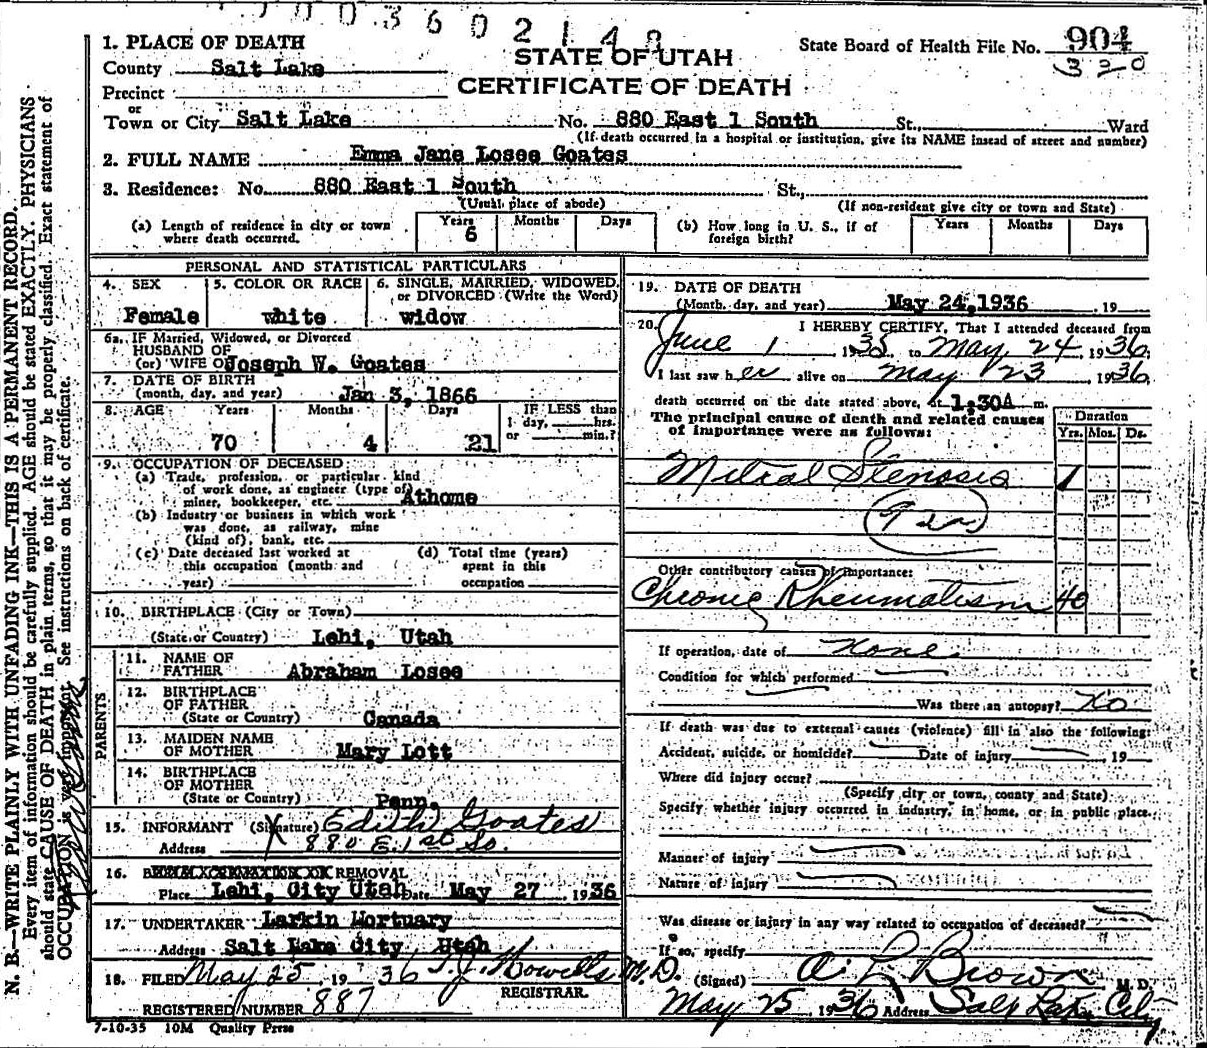 0 0 3 6 0 2 1 4 8
1. PLACE OF DEATH
County Salt Lake
Precinct
or
Town or City Salt Lake No. 880 East 1 South St., Ward
(If death occurred in a hospital or institution, give its NAME insead of street and number)
STATE OF UTAH
CERTIFICATE OF DEATH
State Board of Health File No. 904
320
2. FULL NAME Emma Jane Losee Goates
3. Residence: No. 880 East 1 South St.,
(Usual place of abode) (If non-resident give city or town and State)
(a) Length of residence in city or town where death occurred. Years 6 Months Days
(b) How long in U. S., if of foreign birth? Years Months Days
PERSONAL AND STATISTICAL PARTICULARS
4. SEX Female
5. COLOR OR RACE white
6. SINGLE, MARRIED, WIDOWED, or DIVORCED (Write the Word) widow
6a. IF Married, Widowed, or Divorced
HUSBAND OF
(or) WIFE OF Joseph W. Goates
7. DATE OF BIRTH
(month, day, and year) Jan 3, 1866
8. AGE Years Months Days IF LESS than
70 4 21 1 day, hrs.
or min.?
9. OCCUPATION OF DECEASED:
(a) Trade, profession, or particular kind
of work done, as engineer (type of)
miner, bookkeeper, etc. Athome
(b) Industry or business in which work
was done, as railway, mine
(kind of), bank, etc.
(c) Date deceased last worked at this occupation (month and year)
(d) Total time (years) spent in this occupation
10. BIRTHPLACE (City or Town)
(State or Country) Lehi, Utah
PARENTS
11. NAME OF FATHER Abraham Losee
12. BIRTHPLACE OF FATHER
(State or Country) Canada
13. MAIDEN NAME OF MOTHER Mary Lott
14. BIRTHPLACE OF MOTHER
(State or Country) Penn.
15. INFORMANT (Signature) X Edith Goates
Address 880 E. 1st So.
16. REMOVAL
Place Lehi, City Utah Date May 27 1936
17. UNDERTAKER Larkin Mortuary
Address Salt Lake City, Utah
18. FILED May 25 1936 T. J. Howells M.D.
REGISTRAR.
REGISTERED NUMBER 887
7-10-35 10M Quality Press
19. DATE OF DEATH
(Month, day, and year) May 24, 1936 19
20. I HEREBY CERTIFY, That I attended deceased from
June 1 1935 to May 24 1936
I last saw her alive on May 23 1936
death occurred on the date stated above, at 1.30A m.
The principal cause of death and related causes of importance were as follows:
Duration
Yrs. Mos. Ds.
Mitral Stenosis 1
Other contributory causes of importance:
Chronic Rheumatism 40
If operation, date of None
Condition for which performed
Was there an autopsy? No
If death was due to external causes (violence) fill in also the following:
Accident, suicide, or homicide? Date of injury 19
Where did injury occur?
(Specify city or town, county and State)
Specify whether injury occurred in industry, in home, or in public place.
Manner of injury
Nature of injury
Was disease or injury in any way related to occupation of deceased?
If so, specify
(Signed) A L Brown M. D.
May 25 1936 Address Salt Lake City
N. B.—WRITE PLAINLY WITH UNFADING INK—THIS IS A PERMANENT RECORD.
Every item of information should be carefully supplied. AGE should be stated EXACTLY. PHYSICIANS
should state CAUSE OF DEATH in plain terms, so that it may be properly classified. Exact statement of
OCCUPATION is very important. See instructions on back of certificate.